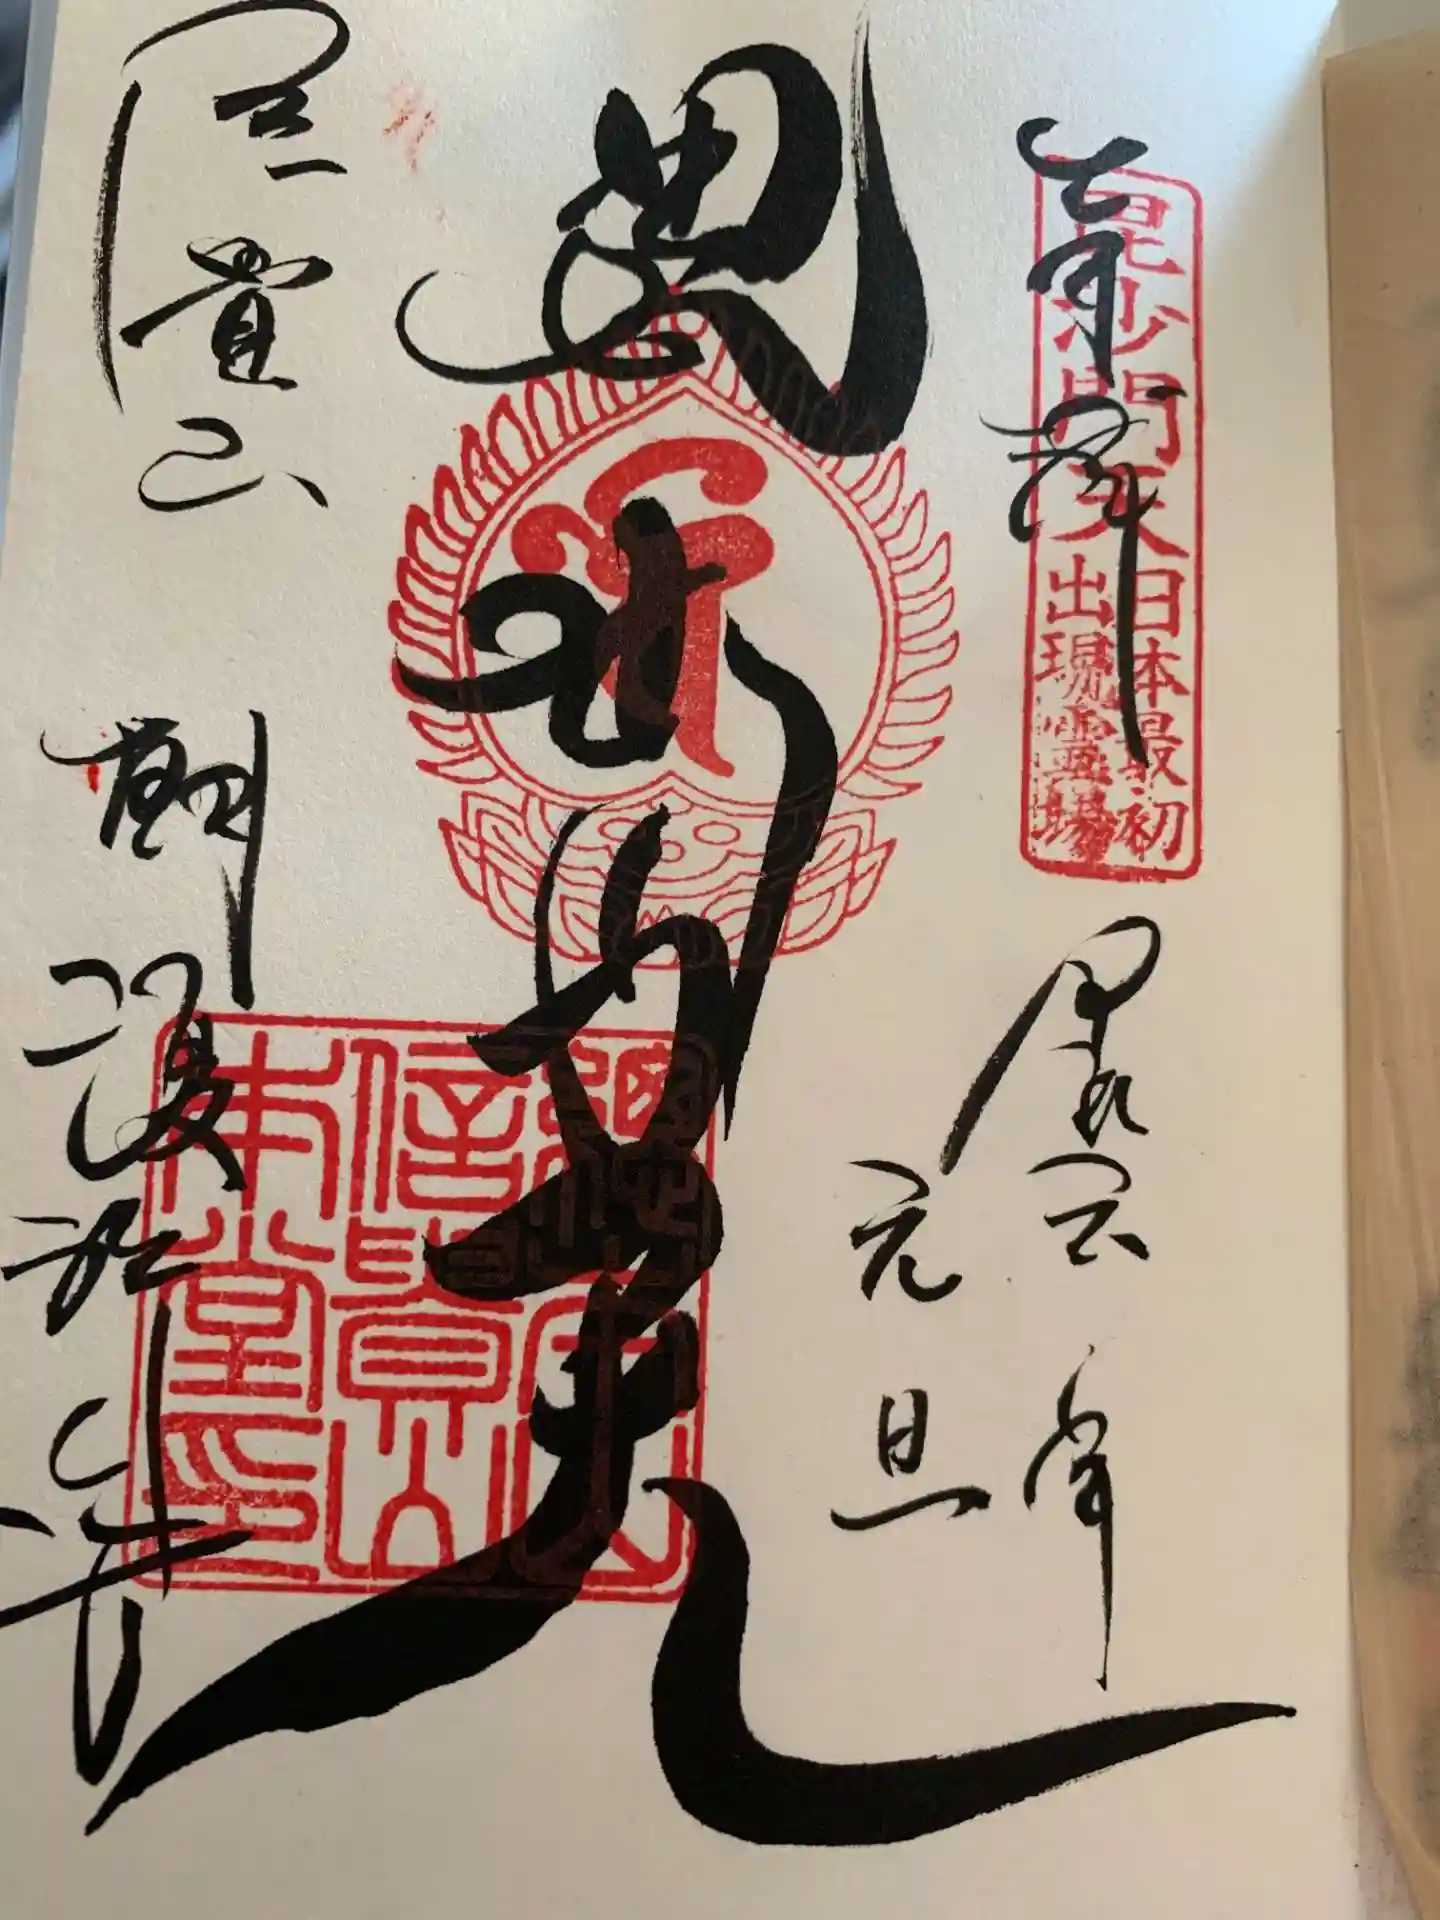 奉拝
毘沙門天
日本最初
出現霊場
元旦
毘沙門天
信貴山
本堂印
信貴山
朝護孫子寺